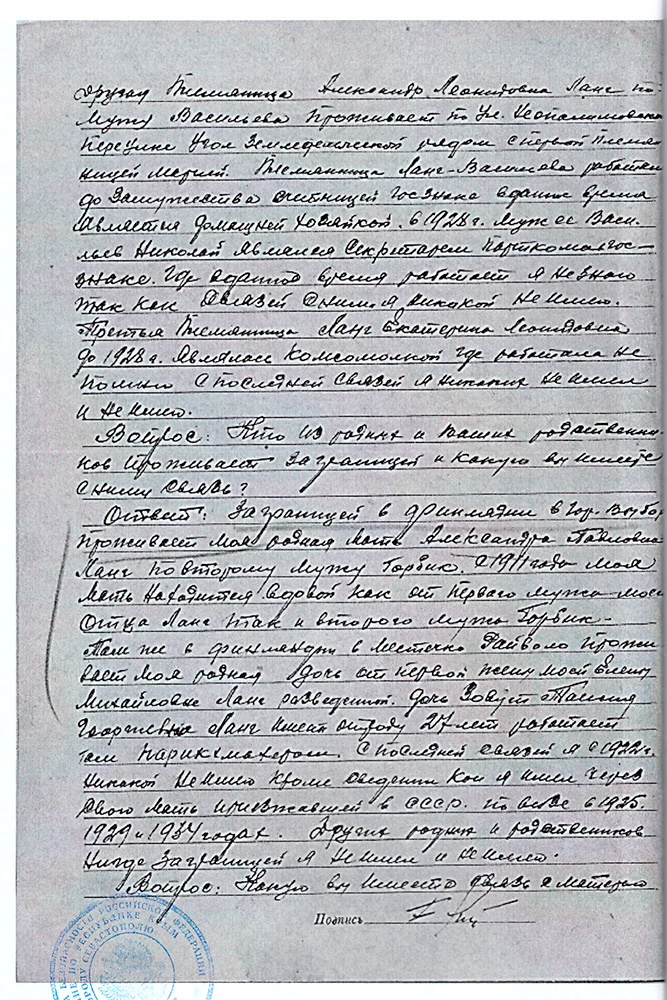 другая Племянница Александр Леонидовна Ланг по
Мужу Васильева Проживает по Ул. Неопалимовско
Переулке Угол Земледельческой рядом с первой Племя
ницей Марией. Племянница Ланг-Васильева работала
до Замужества счетницей Госзнака в данное время
Является домашней хозяйкой. в 1928 г. Муж ее Васи-
льев Николай Являлся Секретарем Парткома гос-
знака. Где в данное время работает я не знаю
так как Связей с ним я никакой не имею.
Третья Племянница Ланг Екатерина Леонидовна
до 1928 г. Являлась Комсомолкой где работала не
Помню с Последней Связей я никаких не имел
и не имею.
Вопрос: Кто из родных и Ваших родственни-
ков проживает за границей и какую вы имеете
с ними Связь?
Ответ: За границей в финляндии в гор. Выбор
проживает моя родная Мать Александра Павловна
Ланг по второму мужу Горбик. с 1911 года моя
Мать находится вдовой как от первого мужа-моего
Отца Ланг так и второго мужа Горбик-
Там же в финляндии в местечко Райволо прожи
вает моя родная дочь от первой жены моей Елены
Михайловны Ланг разведенной. дочь Зовут Таисия
Георгиевна Ланг имеет от роду 27 лет работает
там Парикмахером. с последней связей я с 1922 г.
никакой не имею кроме сведений кои я имел через
Свою Мать приезжавшей в СССР. по визе в 1925.
1929 и 1934 годах. Других родных и родственников
Нигде За границей я не имел и не имею.
Вопрос: Какую вы имеете связь с матерью
Подпись
БЕЗОПАСНОСТИ РОССИЙСКОЙ ФЕДЕРАЦИИ
ПО РЕСПУБЛИКЕ КРЫМ
ГОРОДУ СЕВАСТОПОЛЮ